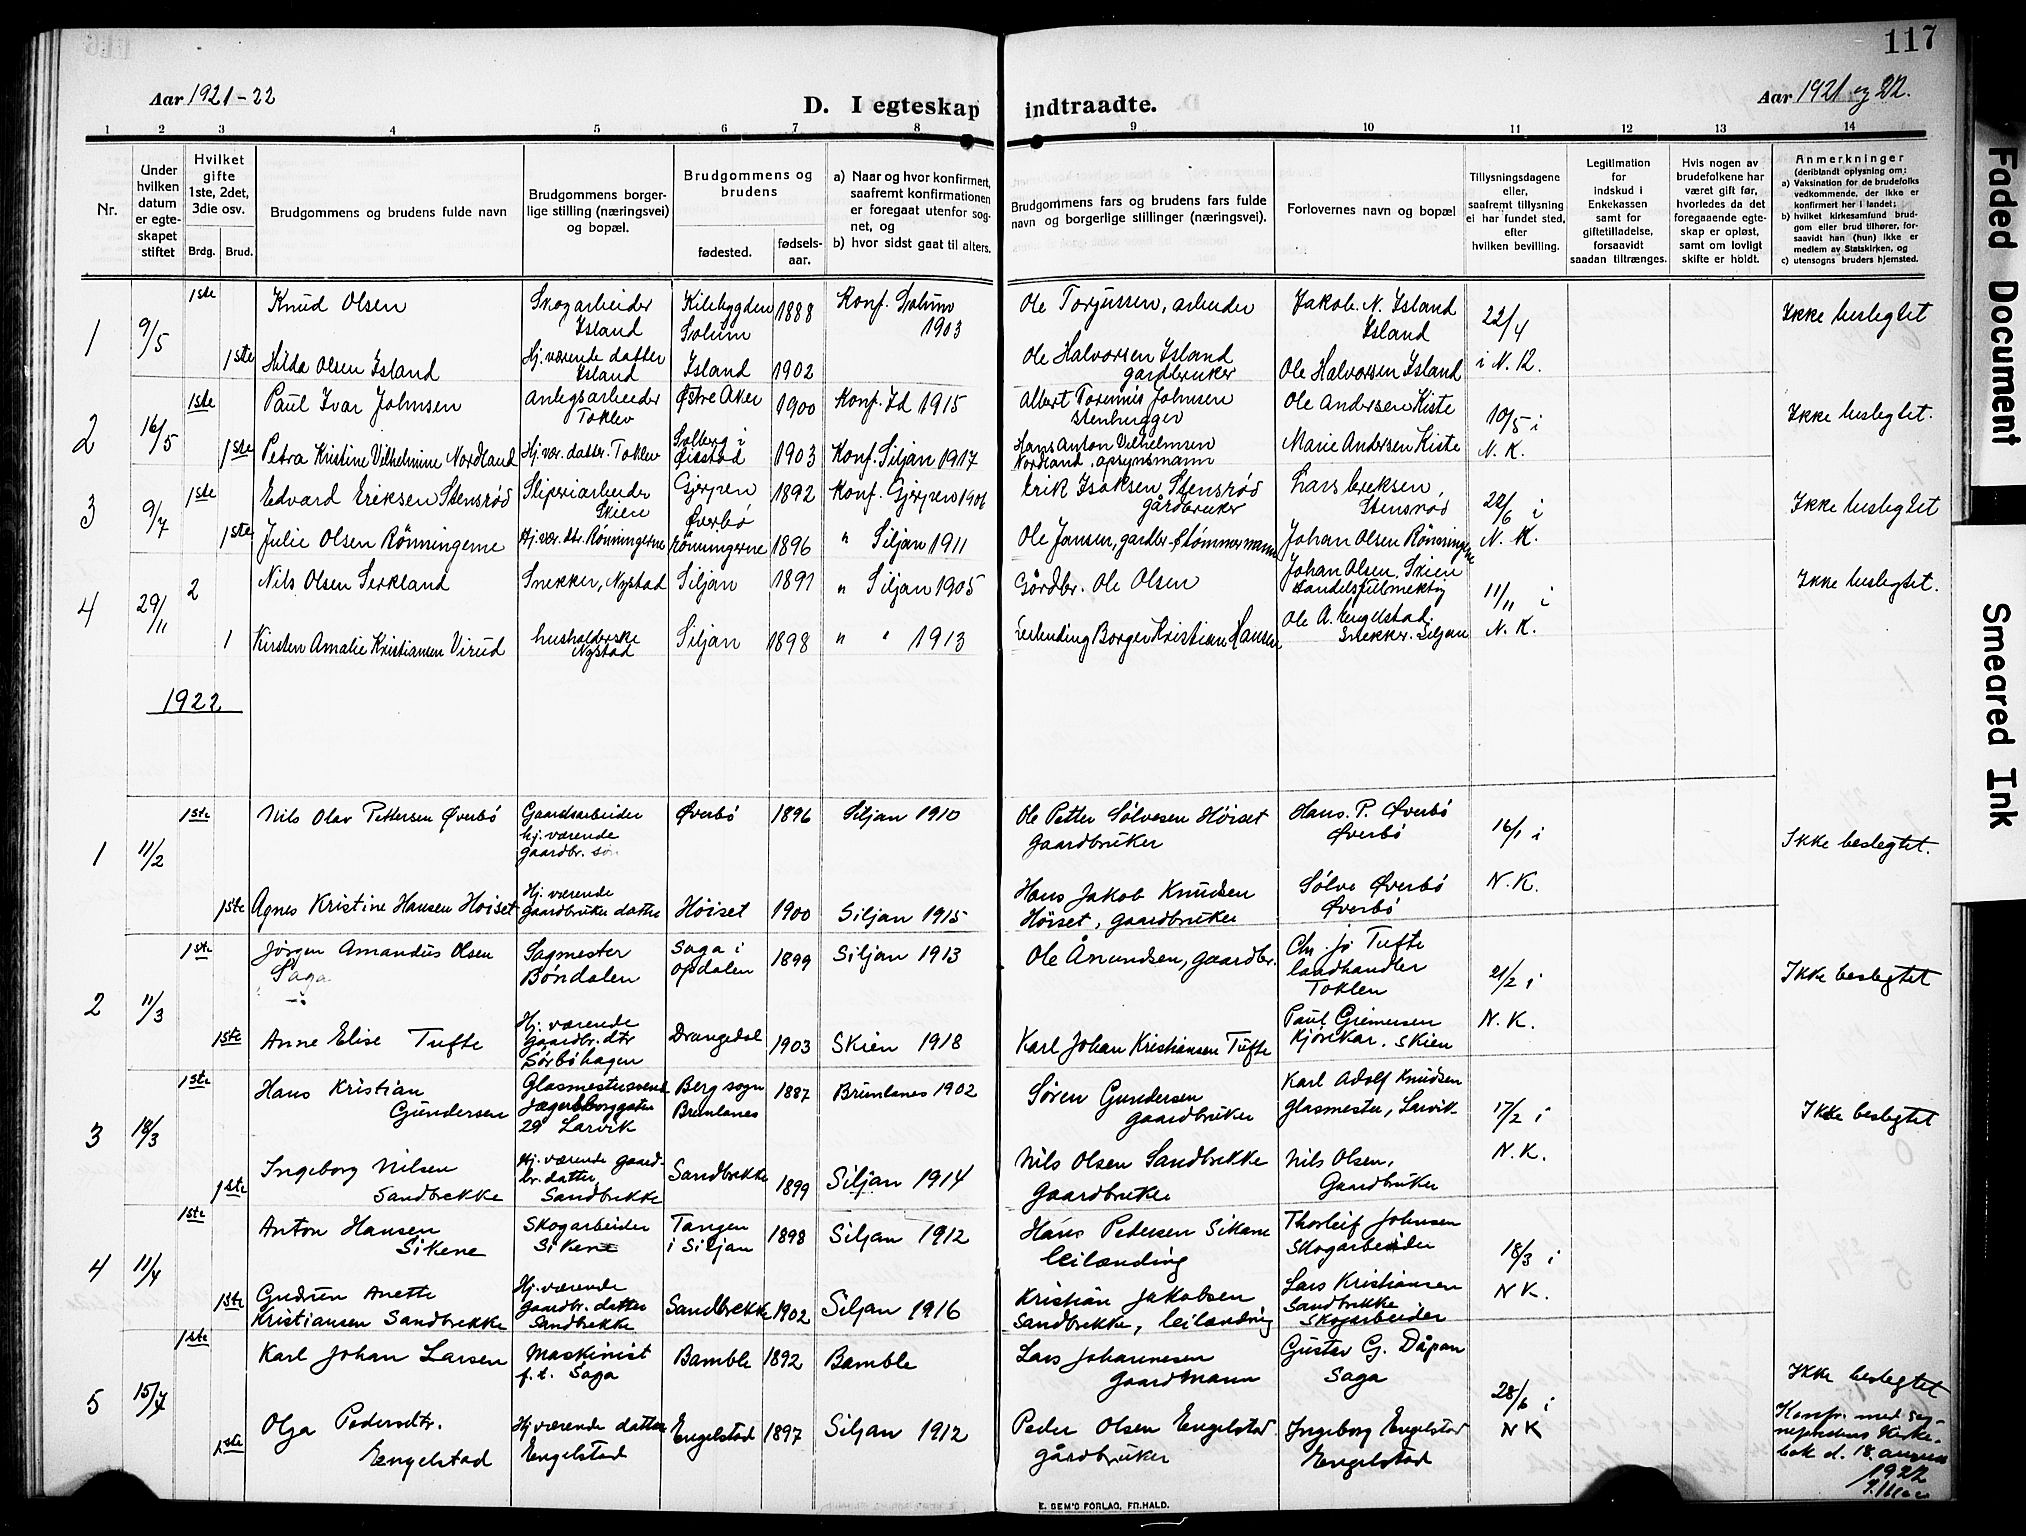 117
Aar 1921-22
D. I egteskap indtraadte.
Aar 1921 og 22.
1 2 3 4 5 6 7 8 9 10 11 12 13 14
Nr.
Under hvilken datum er egteskapet stiftet
Hvilket gifte 1ste, 2det, 3die osv.
Brdg. Brud.
Brudgommens og brudens fulde navn
Brudgommens borgerlige stilling (næringsvei) og bopæl.
Brudgommens og brudens
fødested. fødselsaar.
a) Naar og hvor konfirmert, saafremt konfirmationen er foregaat utenfor sognet, og
b) hvor sidst gaat til alters.
Brudgommens fars og brudens fars fulde navn og borgerlige stillinger (næringsvei).
Forlovernes navn og bopæl
Tillysningsdagene eller, saafremt tillysning ei har fundet sted, efter hvilken bevilling.
Legitimation for indskud i Enkekassen samt for giftetilladelse, forsaavidt saadan tiltrænges.
Hvis nogen av brudefolkene har været gift før, hvorledes da det foregaaende egteskap er opløst, samt om lovligt skifte er holdt.
Anmerkninger
(deriblandt oplysning om:
a) Vaksination for de brudefolks vedkommende, der ikke er konfirmert her i landet;
b) hvilket kirkesamfund brudgom eller brud tilhører, forsaavidt han (hun) ikke er medlem av Statskirken, og
c) utensogns bruders hjemsted.
1 9/5 1ste Knud Olsen Skogarbeider Island Kilebygden Solum 1888 Konf. Solum 1903 Ole Torjussen, arbeider Jakob N. Island Island 22/4 Ikke beslegtet
1ste Hilda Olsen Island Hj. værende datter Island Island 1902 Ole Halvorsen Island gardbruker Ole Halvorsen Island i N. 12.
2 16/5 1ste Paul Ivar Johnsen anlegsarbeider Toklev Østre Aker 1900 Konf. Id 1915 Albert Johnsen stenhugger Ole Andersen Kiste 10/5 i Ikke beslegtet.
1ste Petra Kristine Vilhelmine Nordland Hj. vær. datter. Toklev Solberg i 1903 Konf. Siljan 1917 Hans Anton Vilhelmsen Nordland, opsynsmann Marie Andersen Kiste N. K.
3 9/7 1ste Edvard Eriksen Stensrød Sliperiarbeider Skien Gjerpen 1892 Konf. Gjerpen 1906 Erik Isaksen Stensrød gårdbruker Lars Ereksen, Stensrød 22/6 i Ikke beslegtet
1ste Julie Olsen Rønningerne Hj. vær. dtr. Rønningerne Øverbø Rønningerne 1896 " Siljan 1911 Ole Jansen, gardbr. & tømmermann Johan Olsen Rønningene N. K.
4 29/11 2 Nils Olsen Serkland Snekker, Nystad Siljan 1891 " Siljan 1905 Gårdbr. Ole Olsen Johan Olsen, Skien Handelsfulmektig 11/11 i Ikke beslegtet.
1 Kirsten Amalie Kristiansen Virud husholderske Nystad Siljan 1898 " " 1913 Leilending Borger Kristian Hansen Ole A. Engelstad. Snekker. Siljan N. K.
1922
1 11/2 1ste Nils Olav Pettersen Øverbø Gaardsarbeider hj. værende gaardbr. søn Øverbø 1896 Siljan 1910 Ole Petter Sølvesen Høiset gaardbruker Hans. P. Øverbø Øverbø 16/1 i Ikke beslegtet.
1ste Agnes Kristine Hansen Høiset Hj. værende gaardbruker datter Høiset 1900 Siljan 1915 Hans Jakob Knudsen Høiset, gaardbruker Sølve Øverbø Øverbø N. K.
2 11/3 1ste Jørgen Amandus Olsen Saga Sagmester Bøndalen Saga i Opdalen 1899 Siljan 1913 Ole Ånundsen, gaardbr. Chr. Jo Tufte landhandler Toklev 21/2 i Ikke beslegtet
1ste Anne Elise Tufte Hj. værende gaardbr. dtr Sørbøhagen Drangedal 1903 Skien 1918 Karl Johan Kristiansen Tufte Paul Kjørekar. Skien N. K.
3 18/3 1ste Hans Kristian Gundersen Glasmestersvend Jægersborggaten 29 Larvik Berg sogn Brunlanes 1887 Brunlanes 1902 Søren Gundersen gaardbruker Karl Adolf Knudsen glasmester, Larvik 17/2 i Ikke beslegtet
1ste Ingeborg Nilsen Sandbekke Hj. værende gaardbr. datter, Sandbekke Sandbekke 1899 Siljan 1914 Nils Olsen Sandbekke gaardbruker Nils Olsen, Gaardbruker N. K.
4 11/4 1ste Anton Hansen Sikene Skogarbeider Sikene Tangen i Siljan 1898 Siljan 1912 Hans Pedersen Sikane leilending Thorleif Johnsen Skogarbeider 18/3 i
1ste Gudrun Anette Kristiansen Sandbekke Hj. værende gaardbr. datter Sandbekke Sandbekke 1902 Siljan 1916 Kristian Jakobsen Sandbekke, leilænding Lars Kristiansen Sandbekke Skogarbeider N K.
5 15/7 1ste Karl Johan Larsen Maskinist f. t. Saga Bamble 1892 Bamble Lars Johannesen gaardmann Gustav G. Dåpan Saga 28/6 i Ikke beslegtet
1ste Olga Pedersdtr. Engelstad Hj. værende datter Engelstad Engelstad 1897 Siljan 1912 Peder Olsen Engelstad gårdbruker Ingeborg Engelstad Engelstad N K
Konfr. med sognepræstens Kirkebok d. 18. august 1922
E. SEM'S FORLAG, FR.HALD.
Faded Document
Smeared Ink